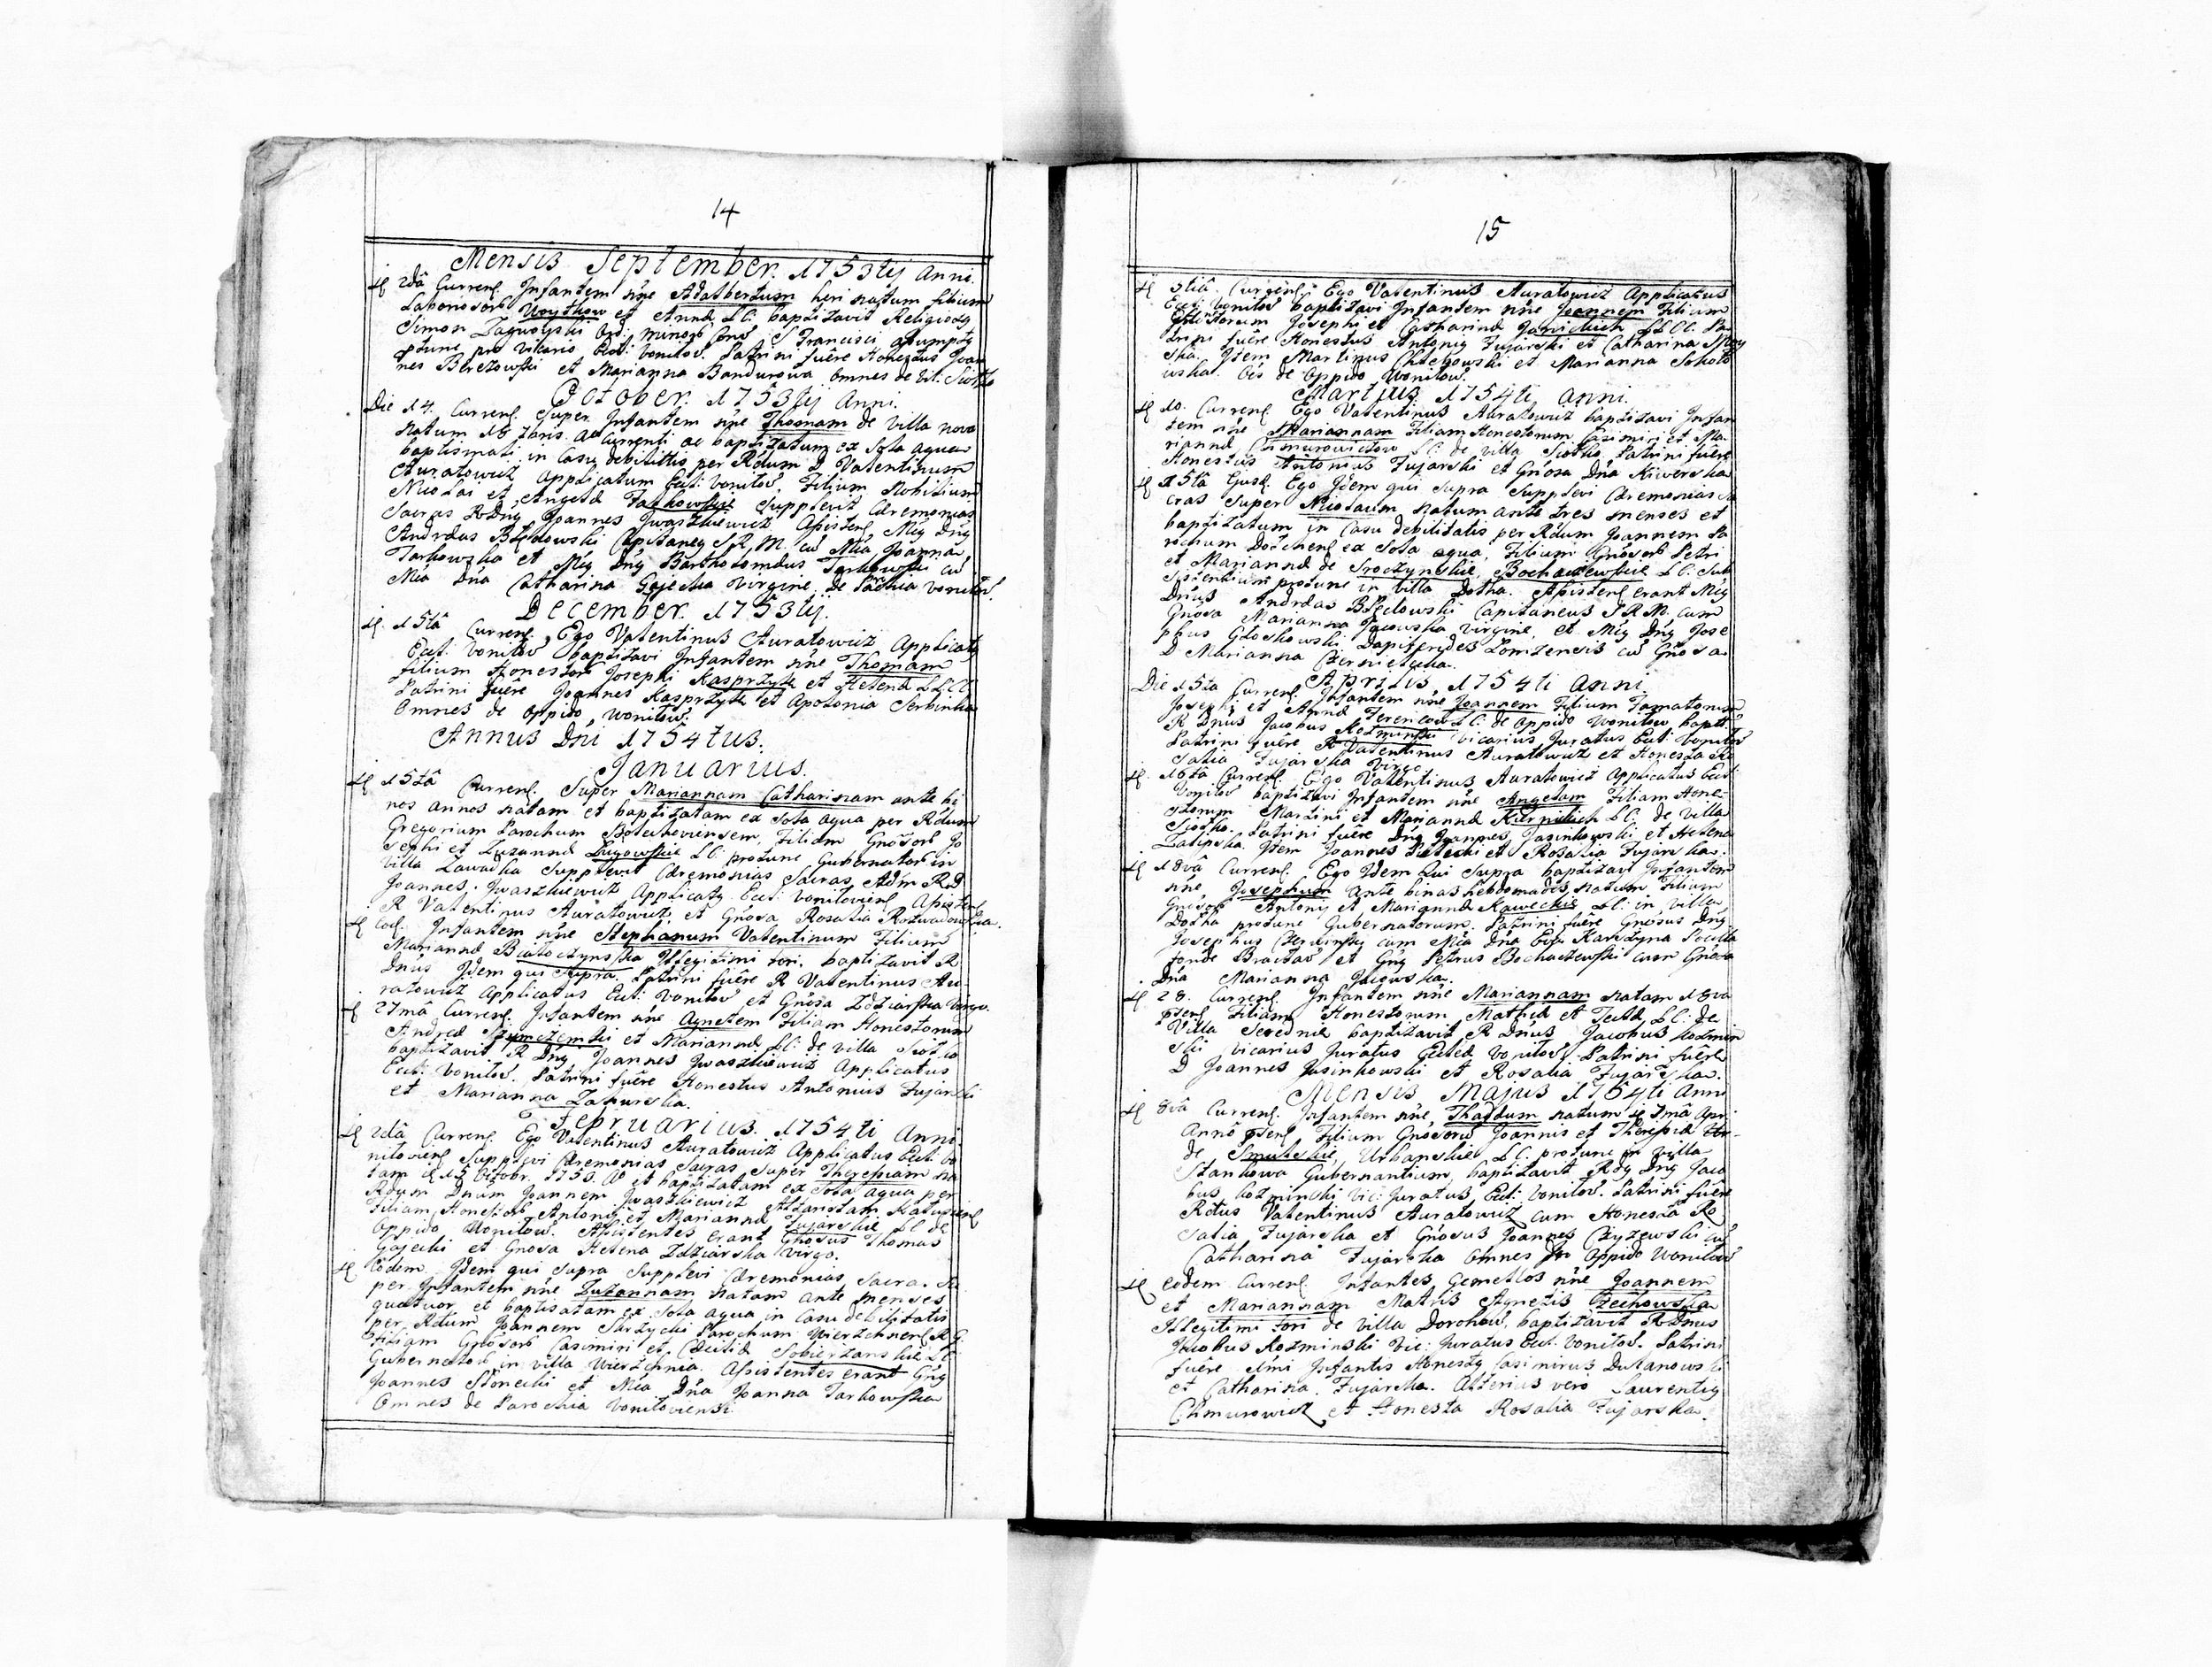 14
Mensis September. 1753tij Anni.
d 2dâ Currenſ. Infantem nñe Adalbertum heri natum filium
Laboriosorũ Woytkow et Annæ LC: baptizavit Religiosq
Simon Ord: Minorũ Snd S Francisci assumptq
ptunc pro Vicario Eccl: Vonitov. Patrini fuêre Honestus Joan
nes Berezowski et Marianna Bandurowa omnes de Vil:
October. 1753tij Anni.
Die 14. Currenſ. Super Infantem nñe Thomam de Villa nova
natum 18 7bris. ac baptizatum ex sola aqua
baptismali in Casu debilittis per Rdum D Valentinum
Auratowicz Applicatum Eccl: Vonitov. Filium Nobilium
Nicolai et Angelæ Tarkowskie Supplevit Cæremonias
Sacras RDnq Joannes Jwaszkiewicz Aſsistenſ. Mgq Dnq
Andræas Błędowski Capitaneq S.R.M. cũ Mĩa Joanna
Tarkowska et Mgq Dnq Bartholomæus Tarkowski cũ
Mĩa Dña Catharina Gajecka Virgine de Parchia Vonitov.
December. 1753tij.
d. 15tâ Currenſ. Ego Valentinus Auratowicz Applicatq
Eccl: Vonitov baptizavi Infantem nñe Thomam
filium Honestorũ Josephi Kasprzyk et Helenæ LLCC
Patrini fuêre Joannes Kasprzyk et Apolonia Serbinka
Omnes de Oppido Vonitov.
Annus Dni 1754tus.
Januarius.
d 15tâ Currenſ. Super Mariannam Catharinam ante bi
nos annos natam et baptizatam ex sola aqua per Rdum
Gregorium Parochum Filiam Gnõsorũ Jo
sephi et Zuzannæ Ługowskie LC: protunc Gubernatorũ in
Villa Zawadka Supplevit Cæremonias Sacras Adm RD
Joannes Jwaszkiewicz Applicatq Eccl: Vonitovienſ. Aſsistenſ
R Valentinus Auratowicz et Gnõsa Rosalia Rozwadowska.
d eod. Infantem nñe Stephanum Valentinum Filium
Mariannæ Białoczynska Illegitimi tori. baptizavit R
Dnũs Idem qui Supra. Patrini fuêre R Valentinus Au-
ratowicz Applicatus Eccl: Vonitov et Gnõsa Zdziarska Virgo.
d 27mâ Currenſ. Infantem nñe Agnetem Filiam Honestorum
Andreæ et Mariannæ LC: de Villa Siotko
baptizavit R Dnq Joannes Jwaszkiewicz Applicatus
Eccl: Vonitov. Patrini fuêre Honestus Antonius Fujarski
et Marianna Zakurska.
Februarius. 1754ti Anni
d 2dâ Currenſ. Ego Valentinus Auratowicz Applicatus Eccl: Vo
nitovienſ Supplevi Cæremonias Sacras Super Theresiam na
tam d 15 Octobr. 1753. Aõ et baptizatam ex sola aqua per
Rdum Dnum Joannem Jwaszkiewicz Altaristam
Filiam Honestorũ Antonij et Mariannæ Fujarskie LC de
Oppido Vonitow. Aſsistentes erant Gnõsus Thomas
Gajecki et Gnosa Helena Zdziarska Virgo.
d Eodem Idem qui supra Supplevi Cæremonias Sacra. Su
per Infantem nñe Zuzannam natam ante menses
quatuor et baptisatam ex sola aqua in Casu debilitatis
per Rdum Joannem Parochum
Filiam Gnõsorũ Casimiri et Cæciliæ Sobierzanskie LC
Gubernatorũ in Villa Wierzchnia. Aſsistentes erant Gnq
Joannes Słonecki et Mĩa Dña Joanna Tarkowska
Omnes de Parochia Vonitoviensi
15
d 3tiâ. Currenſ. Ego Valentinus Auratowicz Applicatus
Eccl: Vonitov baptizavi Infantem nñe Joannem Filium
Josephi et Catharinæ Janickich LLCC. Pa
trini fuêre Honestus Antoniq Fujarski et Catharina
ska. Item Martinus Chlebowski et Marianna Sokoło
wska. Oẽs de Oppido Vonitow.
Martius. 1754ti. Anni.
d 10. Currenſ. Ego Valentinus Auratowicz baptizavi Infan
tem nñe Mariannam Filiam Honestorum Casimiri et Ma-
riannæ Chmurowiczow LC: de Villa Siotko. Patrini fuêre
Honestus Antonius Fujarski et Gnõsa Dña Kiwerska
d 15tâ Ejusd. Ego Idem qui Supra Supplevi Cæremonias Sa
cras Super Nicolaum natum ante tres menses et
baptizatum in Casu debilitatis per Rdum Joannem Pa
rochum ex sola aqua. Filium Gnõsorũ Petri
et Mariannæ de Sroczynskie Bochaczewskie LC: Sub
sistentium protunc in Villa Dołha. Aſsistenſ erant Mgq
Dnus Andræas Błędowski Capitaneus S.R.M. cum
Gnõsa Marianna Jacowska Virgine, et Mgq Dnq Jose
phus Głoskowski Dapiferides Łomzensis cũ Gnõsa
D Marianna Czerniecka.
Aprilis 1754ti Anni
Die 15ta Currenſ. Infantem nñe Joannem Filium Famatorum
Josephi et Annæ Ferencow LC: de Oppido Vonitow baptt.
R Dnus Jacobus Kozminski Vicarius Juratus Eccl: Vonitov
Patrini fuêre R Valentinus Auratowicz et Honesta Ro
salia Fujarska Virgo
d. 16tâ Currenſ. Ego Valentinus Auratowicz Applicatus Eccl:
Vonitov baptizavi Infantem nñe Angelam Filiam Hone-
storum Martini et Mariannæ Kiernickich LC: de Villa
Siotko. Patrini fuêre Dnq Joannes Jasinkowski et Helena
Zalipska. Item Joannes Bielecki et Rosalia Fujarska.
d 18vâ Currenſ. Ego Idem Qui Supra baptizavi Infantem
nñe Josephum ante binas hebdomades natum Filium
Gnõsorũ Antonij et Mariannæ Kaweckie LC: in Villa
Dołha protunc Gubernatorum. Patrini fuêre Gnõsus Dnq
Josephus Czerwinski cum Mĩa Dña Eva Karszyna Pocilla
tonde Bracłav et Gnq Petrus Bochaczewski cum Gnõsa
Dña Marianna Jacowska.
d 28. Currenſ. Infantem nñe Mariannam natam 18va
pſenſ Filiam Honestorum Mathiæ et Teclæ LC: de
Villa Serednie baptizavit R Dnus Jacobus Kozmin
ski Vicarius Juratus Eccleæ Vonitov. Patrini fuêre
D Joannes Jasinkowski et Rosalia Fujarska.
Mensis Majus 1754ti Anni
d 8vâ Currenſ. Infantem nñe Thadæum natum d 7mâ Apri
Annô pſenſ Filium Gnõsorũ Joannis et Theresiæ
de Smulskie, Urbanskie LC. protunc in Villa
Stankowa Gubernantium, baptizavit Rdq Dnq Jaco
bus Kozminski Vic: Juratus Eccl: Vonitov. Patrini fuêre
Rdus Valentinus Auratowicz cum Honesta Ro
salia Fujarska et Gnõsus Joannes Czyzewski cũ
Catharina Fujarska Omnes de Oppido Vonitow
d eodem Currenſ. Infantes Gemellos nñe Joannem
et Mariannam Matris Agnetis Czechowska
Illegitimi tori de Villa Dorohow. baptizavit R Dnus
Jacobus Kozminski Vic: Juratus Eccl: Vonitov. Patrini
fuêre 1mi Infantis Honestq Casimirus Dulanowski
et Catharina Fujarska. Alterius vero Laurentiq
Chmurowicz et Honesta Rosalia Fujarska.